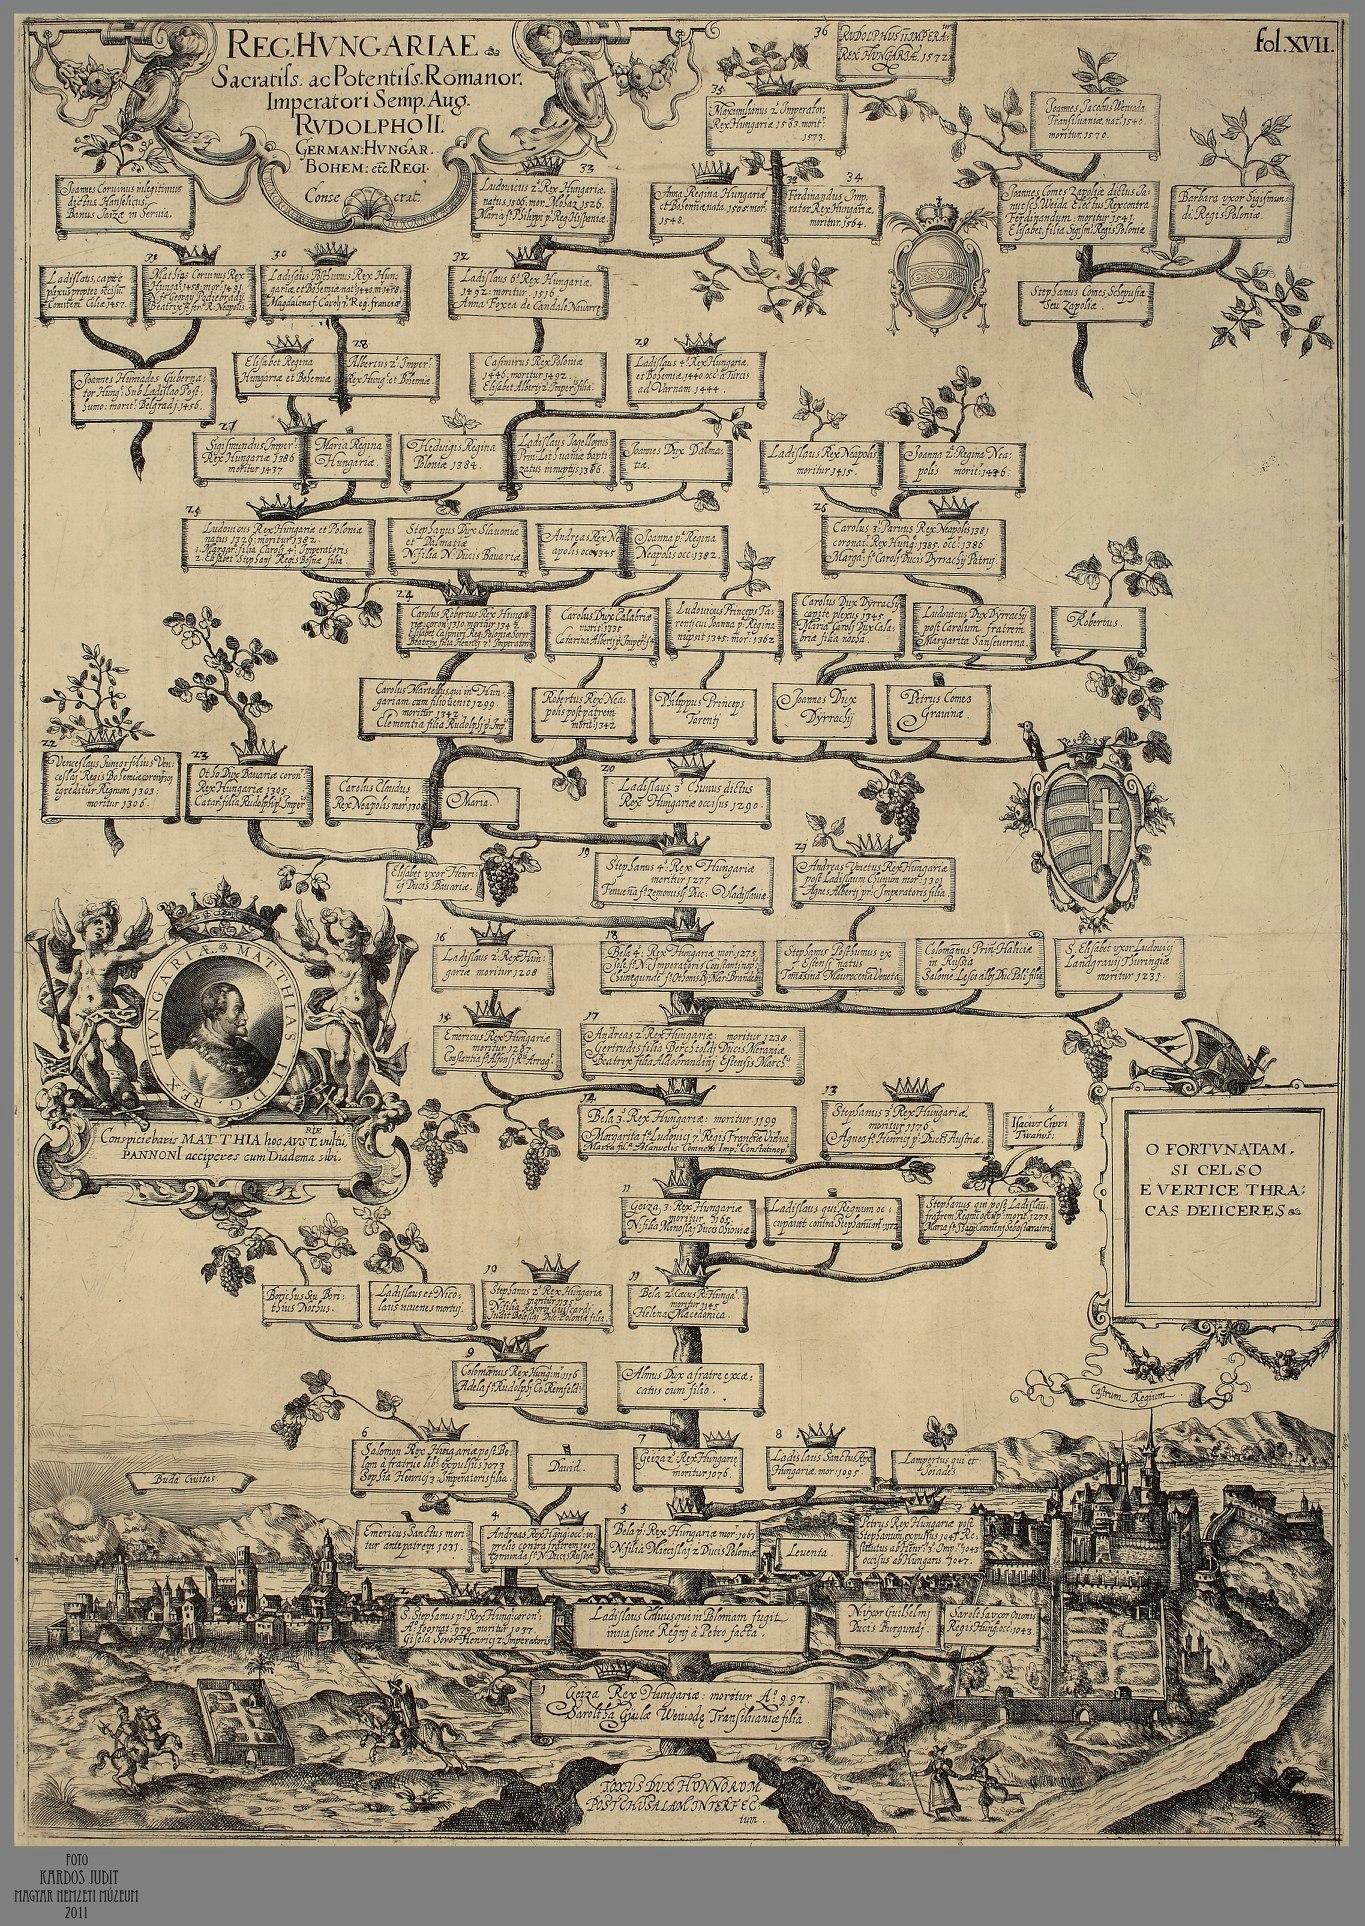 REG. HVNGARIAE
Sacratiss. ac Potentiss. Romanor.
Imperatori Semp. Aug.
RVDOLPHO II.
GERMAN: HVNGAR.
BOHEM: etc. REGI.
Conse crat.
fol. XVII.
36
RUDOLPHUS II IMPERA:
REX HUNGARIÆ, 1572.
35
Maximilianus 2. Imperator,
Rex Hungariæ 1563. morit:
1573.
Joannes Jacobus
Transilvaniæ, nat: 1540.
moritur 1570.
Joannes Corvinus illegitimus
dictus
Banus
33
Ludovicus 2. Rex Hungariæ,
natus 1506: mor: Mohaz 1526.
Maria fª Philippi pº Reg: Hispaniæ.
Anna Regina Hungariæ
et Bohemiæ, nata 1505: mor:
1548.
34
Ferdinandus Imp.
rator Rex Hungariæ,
moritur 1564.
Joannes Comes Zapoliæ dictus
Electus Rex contra
Ferdinandum: moritur 1541.
Elisabet, filia Sigism: Regis Poloniæ
Barbara vxor Sigismun:
di Regis Poloniæ.
Ladislaus, capite
plexus propter occisū
Comitem Ciliæ 1457.
31
Mathias Corvinus Rex
Hungaª 1458: morª 1491.
30
Ladislaus Posthumus Rex Hun:
gariæ, et Bohemiæ, nat: 1440. m: 1458.
Magdalena f. Caroli 7. Reg: franciæ
32
Ladislaus 6. Rex Hungariæ,
1492: moritur, 1516.
Anna Foxea de Candale Navarre
Stephanus Comes Scepusiæ
seu Zapoliæ.
Joannes Huniades Guberna:
tor Hung: Sub Ladislao Post:
humo: morit: Belgradj: 1456.
Elisabet Regina
Hungariæ et Bohemiæ
28
Albertus 2. Imper:
Rex Hung: et Bohemiæ.
Casimirus Rex Poloniæ
1446. moritur 1492.
Elisabet Albertj 2. Imper: filia.
29
Ladislaus 4. Rex Hungariæ,
et Bohemiæ, 1440. occ: a Turcis
ad Varnam 1444.
27
Sigismundus Imper:
Rex Hungariæ 1386
moritur 1437
Maria Regina
Hungariæ.
Heduigis Regina
Poloniæ 1384.
Ladislaus Jagellonis
Prin: Lithuaniæ bapti:
zatus in nuptijs 1386.
Joannes Dux Dalma:
tiæ.
Ladislaus Rex Neapolis
moritur 1415.
Joanna 2. Regina Nea:
polis morit: 1436:
25
Ludovicus Rex Hungariæ et Poloniæ
natus 1326: moritur 1382.
1. Margar: filia Caroli 4. Imperatoris
2. Elisabet Stephani Regis Bosnæ filia.
Stephanus Dux Slavoniæ
et Dalmatiæ
N. filia N. Ducis Bavariæ.
Andreas Rex Ne
apolis occ: 1345
Joanna pª Regina
Neapolis occ: 1382.
26
Carolus 3. Parvus Rex Neapolis 1381
coronat: Rex Hung: 1385. occ: 1386
Margaª: fª Caroli Ducis Dyrrachij Patrui.
24
Carolus Robertus Rex Hunga
riæ, coron: 1310. moritur 1342
Elisabet Casimiri Reg: Poloniæ Soror
Carolus Dux Calabriæ
morit: 1335
Catarina Alberti p. Imper: fª
Ludovicus Princeps Ta:
renti, cui Joanna p. Regina
nupsit 1345: mor: 1362
Carolus Dux Dyrrachij
capite plexus 1345
Maria Caroli Dux Cala:
briæ filia notha.
Ludovicus Dux Dyrrachij
post Carolum fratrem
Margarita Sanseverina.
Robertus.
Carolus Martellus qui in Hun:
gariam cum filio venit 1299.
moritur 1342.
Clementia filia Rudolphi p. Imp:
Robertus Rex Nea:
polis post patrem
morit: 1342
Philippus Princeps
Tarenti
Joannes Dux
Dÿrrachj
Petrus Comes
Gravinæ.
22
Venceslaus Junior filius Ven:
ceslaj Regis Bohemiæ, coron:
egreditur Regnum 1303:
moritur 1306.
23
Otho Dux Bavariæ coron:
Rex Hungariæ 1305.
Catar: filia Rudolphi p. Imper
Carolus Claudus
Rex Neapolis mor: 1308
Maria.
20
Ladislaus 3. Chunus dictus
Rex Hungariæ occisus 1290.
Elisabet vxor Henri:
cj Ducis Bavariæ.
19
Stephanus 4. Rex Hungariæ
moritur 1277
21
Andreas Venetus Rex Hungariæ
post Ladislaum Chunum mor: 1301
Agnes Albertj pri: Imperatoris filia.
HVNGARIÆ MATTHIAS II. D.G. REX
16
Ladislaus 2. Rex Hun:
gariæ moritur 1208
18
Bela 4. Rex Hungariæ morª 1275
Stephanus Posthumus ex
Estensi natus
Tomasina Maurocena Veneta
Colomanus Prin: Haliciæ
in Russia
S. Elisabet vxor Ludovicj
Landgravij Turingiæ
moritur 1231.
15
Emericus Rex Hungariæ
Constantia fª Alfonsj Rª Arrag:
17
Andreas 2. Rex Hungariæ: moritur 1238.
Gertrudis filia Bertoldj Ducis Meraniæ
Beatrix filia Aldobrandinj Estensis Marc:
14
Bela 3. Rex Hungariæ: moritur 1199
Margarita fª Ludovicj 7. Regis Franciæ Vidua
Maria filª Manuelis Comneni Imp: Constatinop:
13
Stephanus 3. Rex Hungariæ
moritur 1176.
Agnes fª Henricj p. Ducis Austriæ.
Conspiciebavis MATTHIA hoc AVST RIE vultu,
PANNONI acciperes cum Diadema sibi.
O FORTVNATAM,
SI CELSO
E VERTICE THRA:
CAS DEIICERES
11
Geiza, 3: Rex Hungariæ
moritur 1165.
Ladislaus qui Regnum oc:
cupavit contra Stephanum 1172
Stephanus qui post Ladislaū
fratrem Regnū occup: morit: 1273.
Ladislaus et Nico:
laus iuvenes mortuj.
10
Stephanus 2. Rex Hungariæ
moritur 1135
11
Bela 2. Cæcus R. Hunga:
moritur 1145
Helena Macedonica.
9
Colomanus Rex Hung: mª 1116
Almus Dux a fratre excæ:
catus cum filio.
Castrum Regium.
6
Salomon Rex Hungariæ post Be
lam a fratrue libª expulsus 1073
Sophia Henricj 3. Imperatoris filia.
David.
7
Geiza 2. Rex Hungariæ
moritur 1076.
8
Ladislaus Sanctus Rex
Hungariæ, mor: 1095.
Lampertus qui et
Buda Civitas.
Emericus Sanctus mori:
tur ante patrem 1031.
4
Andreas Rex Hung: occ: in
prelio contra fratrem
5
Bela pª: Rex Hungariæ mor: 1063
N. filia Miecislaj 2 Ducis Poloniæ
Leventa.
3
Petrus Rex Hungariæ post
Stephanum, expulsus 1041 Re:
stitutus ab Henrª: 3: Impª: 1043
occisus ab Hungaris 1047.
2
S. Stephanus pª: Rex Hung: coron:
Gisela Soror Henrici 2. Imperatoris
Ladislaus Calvus qui in Poloniam fugit
invasione Regnj à Petro facta.
N. vxor Guilhelmj
Ducis Burgundj.
Sarolta vxor Ovonis
Regis Hung: occ: 1043.
1
Geiza Rex Hungariæ: moritur Aº 997.
Saroltha Gyulæ Weivodę Transilvaniæ filia.
TOXUS DUX HUNNORUM
POST CHUSALAM INTERFEC:
tum.
FOTO
KARDOS JUDIT
MAGYAR NEMZETI MÚZEUM
2011